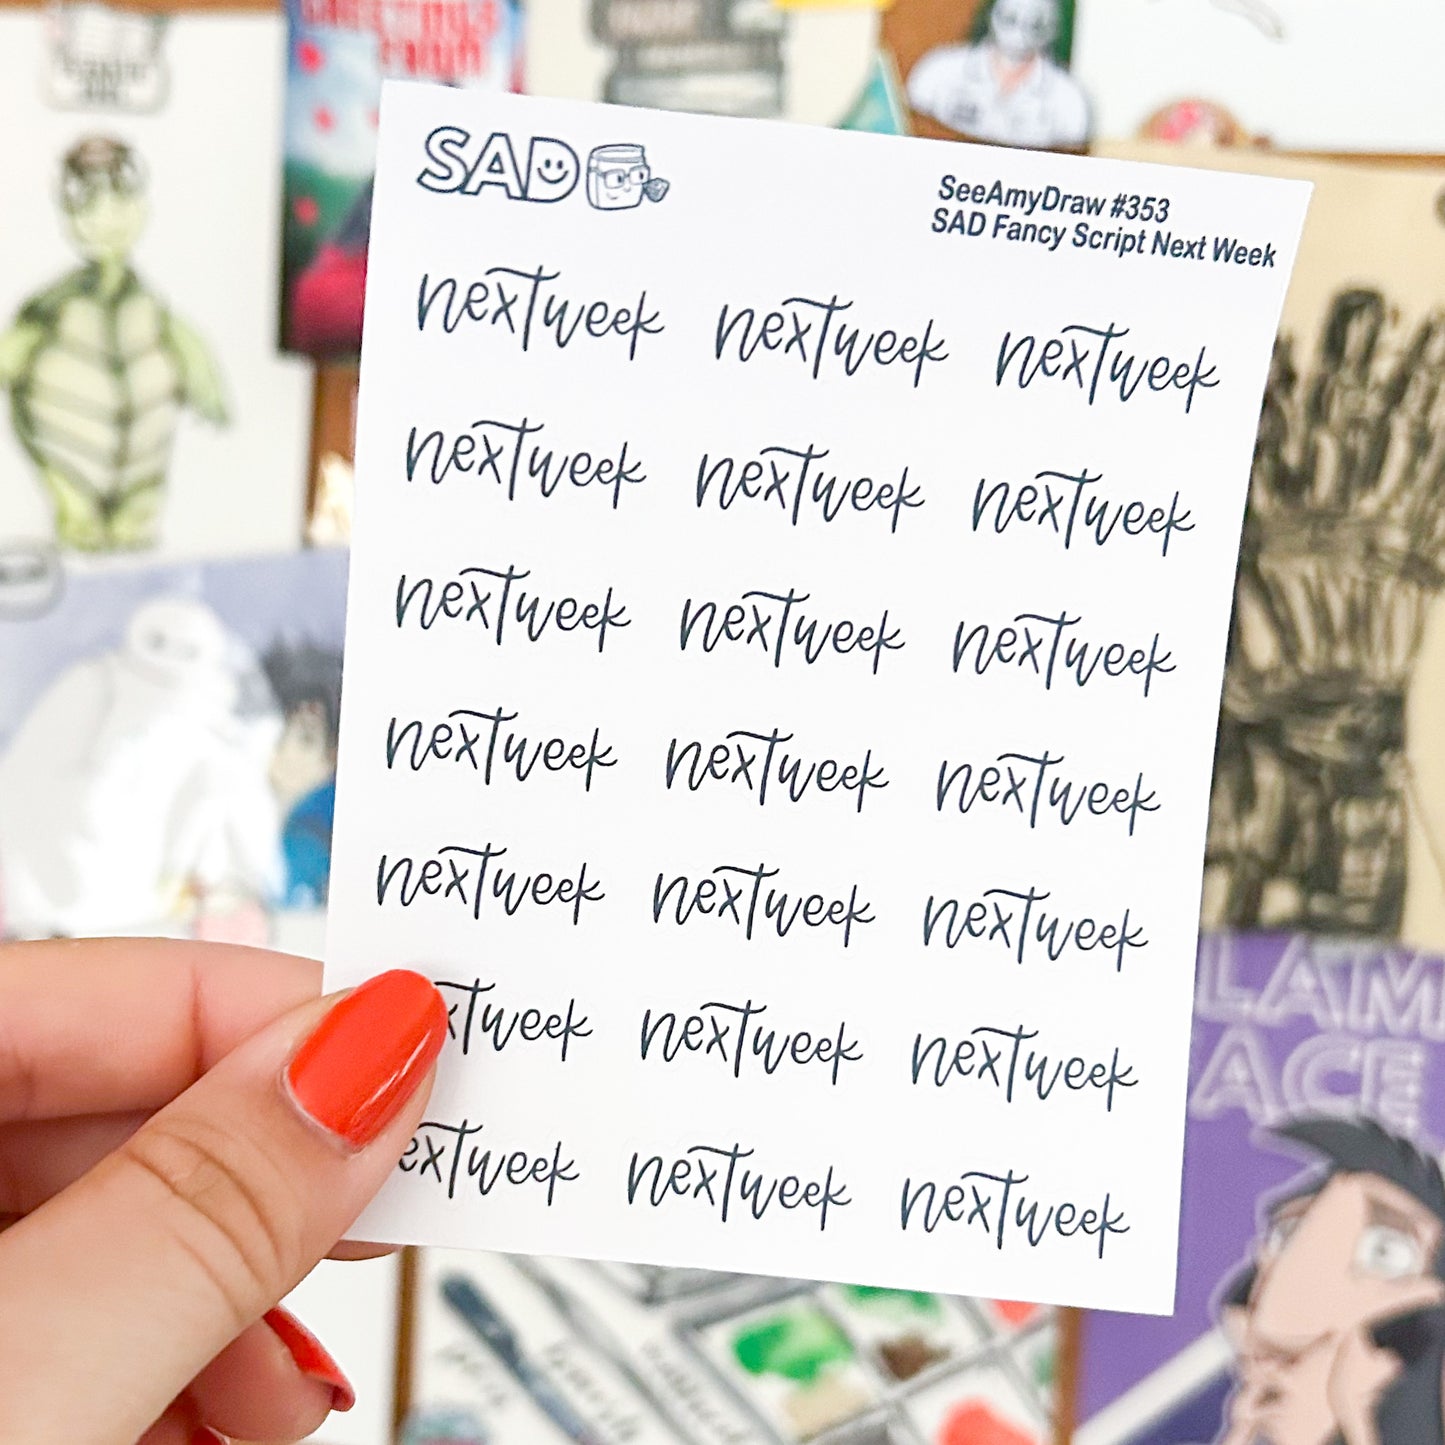 SAD
SeeAmyDraw #353
SAD Fancy Script Next Week
next week next week next week
next week next week next week
next week next week next week
next week next week next week
next week next week next week
xt week next week next week
ext week next week next week
LAM
ACE